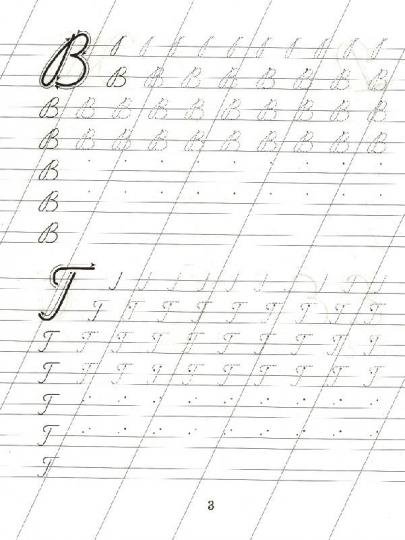 В
В В В В В В В В
В В В В В В В В В В
В В В В В В В В В В
В
В
В
Т
Т Т Т Т Т Т Т Т Т
Т Т Т Т Т Т Т Т Т Т
Т Т Т Т Т Т Т Т Т Т
Т
Т
Т
3